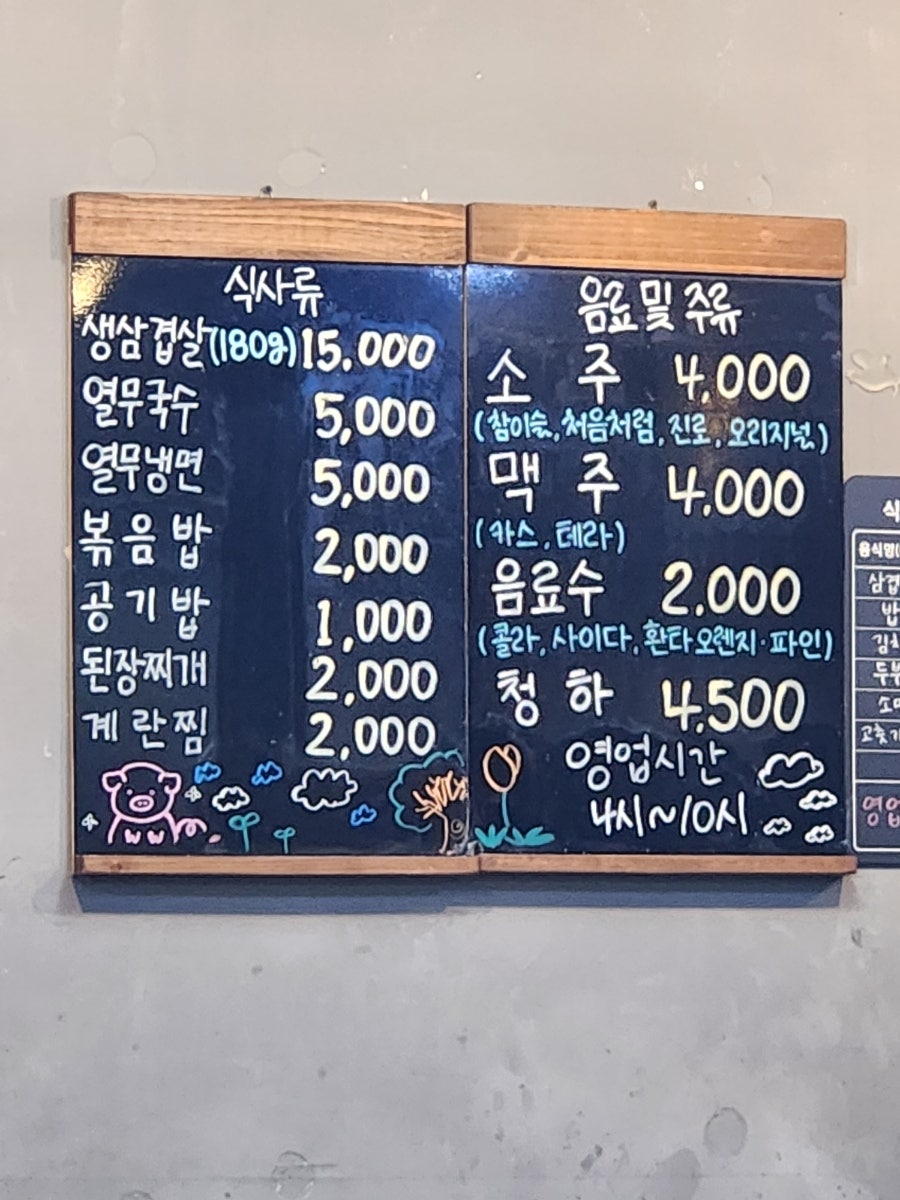 식사류
생삼겹살(180g) 15,000
열무국수 5,000
열무냉면 5,000
볶음밥 2,000
공기밥 1,000
된장찌개 2,000
계란찜 2,000
음료 및 주류
소주 4,000
(참이슬, 처음처럼, 진로, 오리지널)
맥주 4,000
(카스, 테라)
음료수 2,000
(콜라, 사이다, 환타오렌지·파인)
청하 4,500
영업시간
4시~10시
식
음식명(
삼겹
밥
김치
두부
고춧가
영업